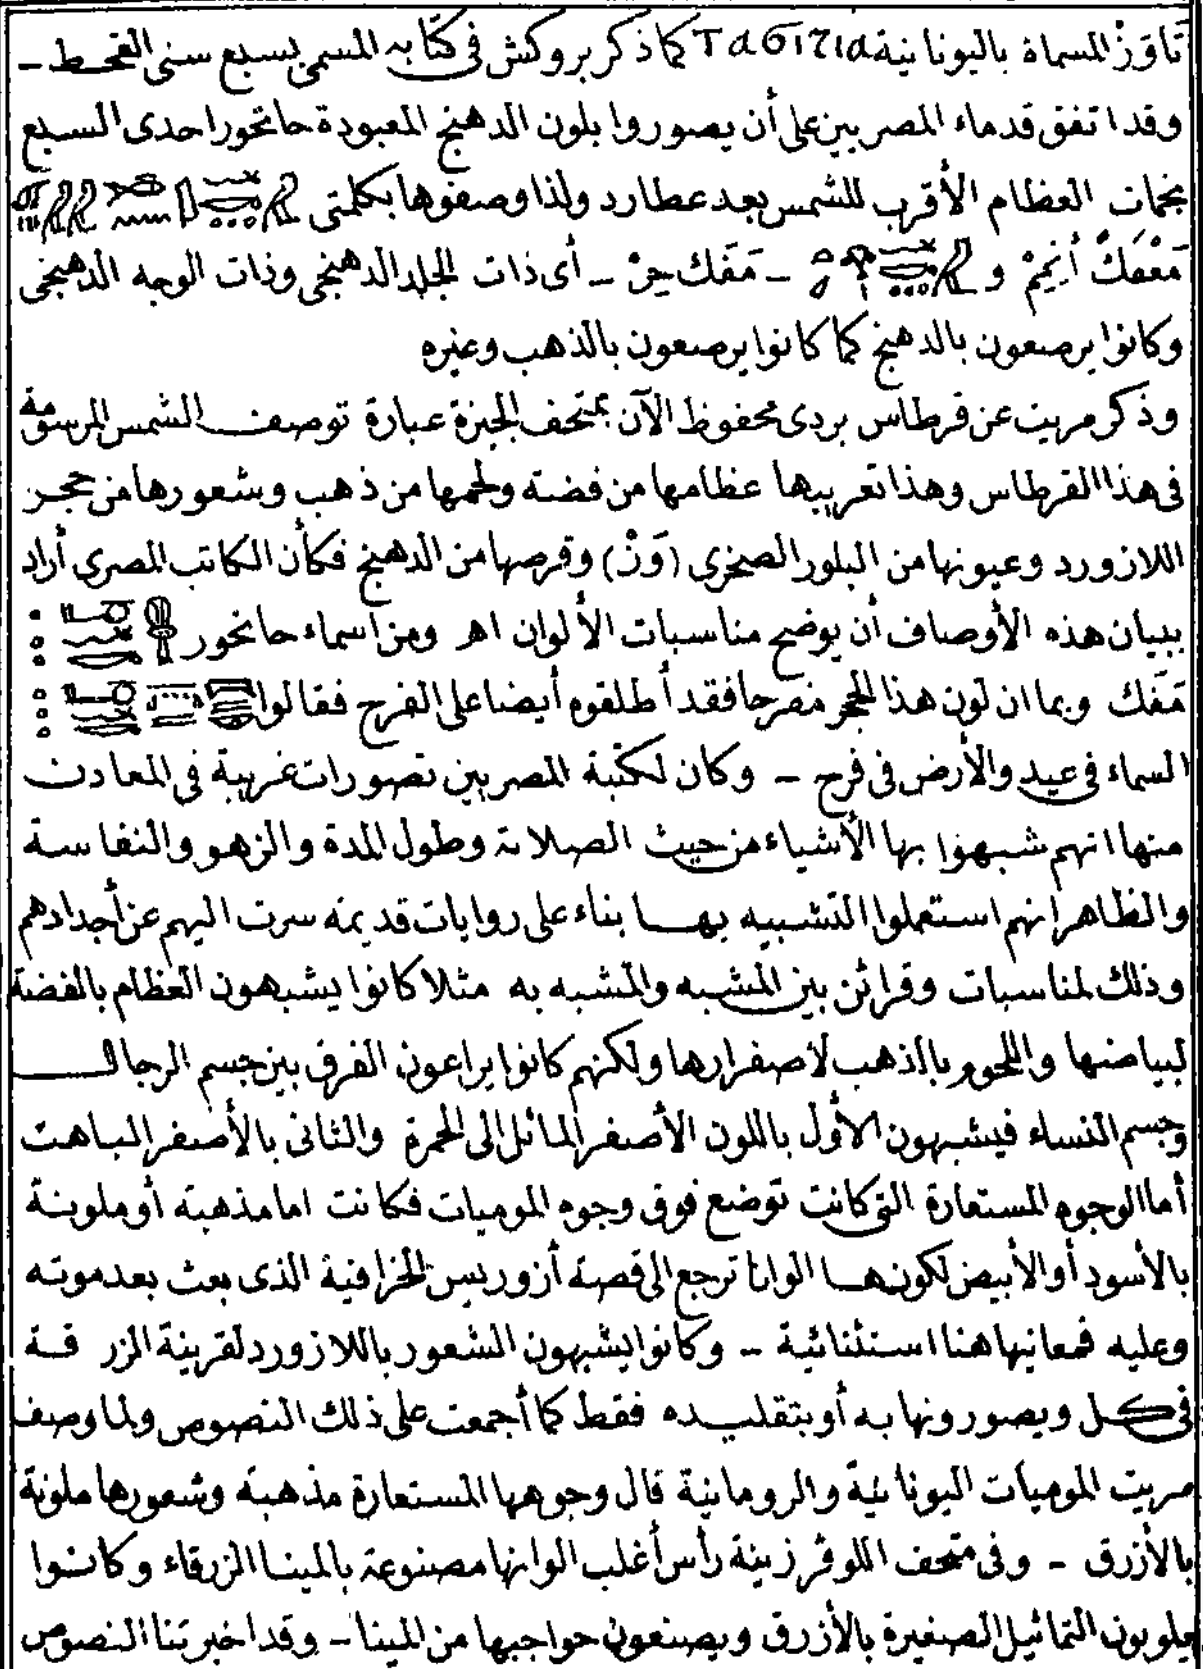 تَاوَزْ المسماة باليونانية كما ذكر بروكش فى كتابه المسمى بسبع سنى القحط ـ
وقد اتفق قدماء المصريين على أن يصوروا بلون الدهنج المعبودة حاتحور احدى السبع
نجمات العظام الأقرب للشمس بعد عطارد ولذا وصفوها بكلمتى
مَعْفَكْ أَنِيمْ و ـ مَفَك حِرْ ـ أى ذات الجلد الدهنجى وذات الوجه الدهنجى
وكانوا يرصعون بالدهنج كما كانوا يرصعون بالذهب وغيره
وذكر مريت عن قرطاس بردى محفوظ الآن بمتحف الجيزة عبارة توصف الشمس المرسومة
فى هذا القرطاس وهذا تعريبها عظامها من فضة ولحمها من ذهب وشعورها من حجر
اللازورد وعيونها من البلور الصخرى (وَنْ) وقرصها من الدهنج فكأن الكاتب المصرى أراد
ببيان هذه الأوصاف أن يوضح مناسبات الألوان اهـ ومن اسماء حاتحور
مَفَك وبما ان لون هذا الحجر مفرحا فقد أطلقوه أيضا على الفرح فقالوا
السماء فى عيد والأرض فى فرح ـ وكان لكتبة المصريين تصورات غريبة فى المعادن
منها انهم شبهوا بها الأشياء من حيث الصلابة وطول المدة والزهو والنفاسة
والظاهر انهم استعملوا التشبيه بها بناء على روايات قديمة سرت اليهم عن أجدادهم
وذلك لمناسبات وقرائن بين المشبه والمشبه به مثلا كانوا يشبهون العظام بالفضة
لبياضها واللحوم بالذهب لاصفرارها ولكنهم كانوا يراعون الفرق بين جسم الرجال
وجسم النساء فيشبهون الأول باللون الأصفر المائل الى الحمرة والثانى بالأصفر الباهت
أما الوجوه المستعارة التى كانت توضع فوق وجوه الموميات فكانت اما مذهبة أو ملونة
بالأسود أو الأبيض لكونها الوانا ترجع الى قصة أزوريس الخرافية الذى بعث بعد موته
وعليه فمعانيها هنا استثنائية ـ وكانوا يشبهون الشعور باللازورد لقرينة الزرقة
فى كل ويصورونها به أو بتقليده فقط كما أجمعت على ذلك النصوص ولما وصف
مريت الموميات اليونانية والرومانية قال وجوهها المستعارة مذهبة وشعورها ملونة
بالأزرق ـ وفى متحف اللوڤر زينة رأس أغلب الوانها مصنوعة بالمينا الزرقاء وكانوا
يلونون التماثيل الصغيرة بالأزرق ويصنعون حواجبها من المينا ـ وقد اخبرتنا النصوص